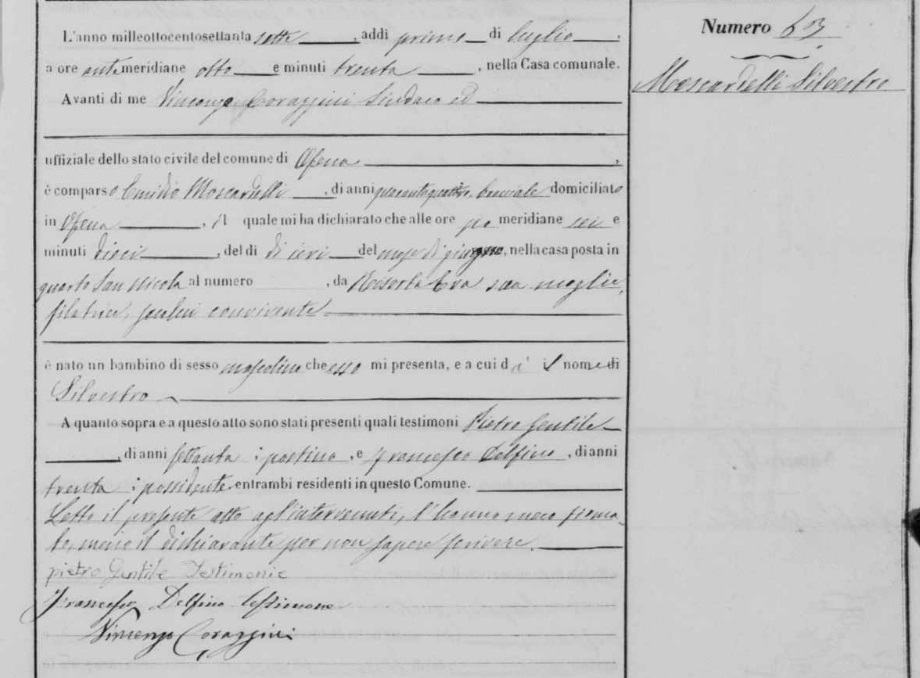 Numero 63
Moscardelli Silvestro
L'anno milleottocentosettanta sette, addi primo di luglio,
a ore antemeridiane otto e minuti trenta, nella Casa comunale.
Avanti di me Vincenzo Corazzini Sindaco ed
uffiziale dello stato civile del comune di Ofena,
è comparso Emidio Moscardelli, di anni quarantaquattro, domiciliato
in Ofena, il quale mi ha dichiarato che alle ore po meridiane sei e
minuti dieci, del di di ieri del mese di giugno, nella casa posta in
quarto San Nicola al numero , da Eva sua moglie,
filatrice, seco lui convivente
è nato un bambino di sesso mascolino che esso mi presenta, e a cui dà il nome di
Silvestro
A quanto sopra e a questo atto sono stati presenti quali testimoni Pietro Gentile
, di anni settanta : postino, e Francesco Delfino, di anni
trenta : possidente, entrambi residenti in questo Comune.
Letto il presente atto agl'intervenuti, l'hanno meco firma-
to, meno il dichiarante per non sapere scrivere.
pietro Gentile Testimonie
Francesco Delfino testimone
Vincenzo Corazzini